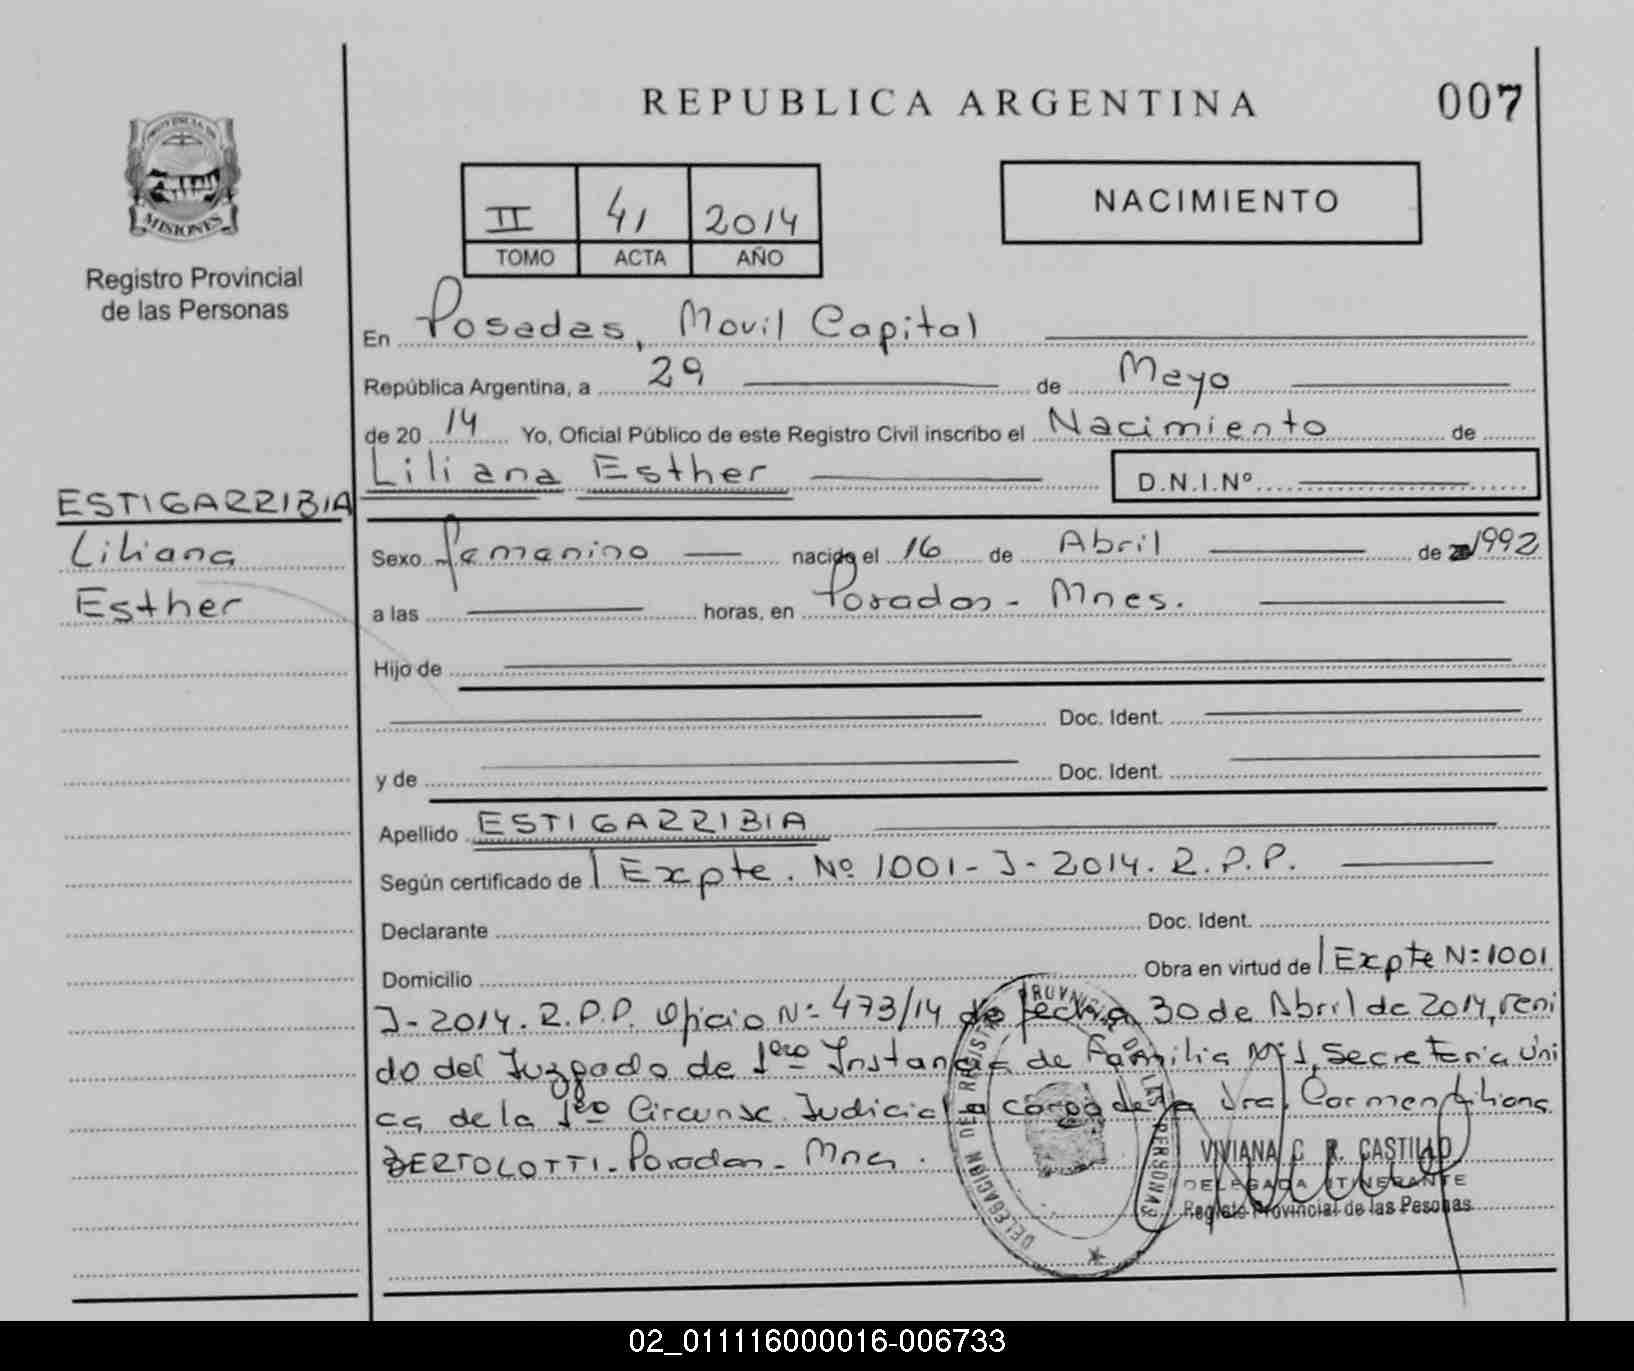 REPUBLICA ARGENTINA
007
PROVINCIA DE
MISIONES
Registro Provincial
de las Personas
II 41 2014
TOMO ACTA AÑO
NACIMIENTO
En Posadas, Movil Capital
República Argentina, a 29 de Mayo
de 20 14 Yo, Oficial Público de este Registro Civil inscribo el Nacimiento de
Liliana Esther D.N.I.Nº
ESTIGARRIBIA
Liliana
Esther
Sexo femenino nacido el 16 de Abril de 1992
a las horas, en Posadas - Mnes.
Hijo de
Doc. Ident.
y de Doc. Ident.
Apellido ESTIGARRIBIA
Según certificado de Expte. Nº 1001-J-2014. R.P.P.
Declarante Doc. Ident.
Domicilio Obra en virtud de Expte Nº 1001
J-2014. R.P.P. Oficio Nº 473/14 de fecha 30 de Abril de 2014, reni
do del Juzgado de 1era Instancia de Familia Nº 1, Secretaria Uni
ca de la 1era Circunsc. Judicial a cargo de la Dra. Carmen Liliana
BERTOLOTTI - Posadas - Mnes.
DELEGACION DEL REGISTRO PROVINCIAL DE LAS PERSONAS
VIVIANA C. R. CASTILLO
DELEGADA ITINERANTE
Registo Provincial de las Pesonas
02_011116000016-006733